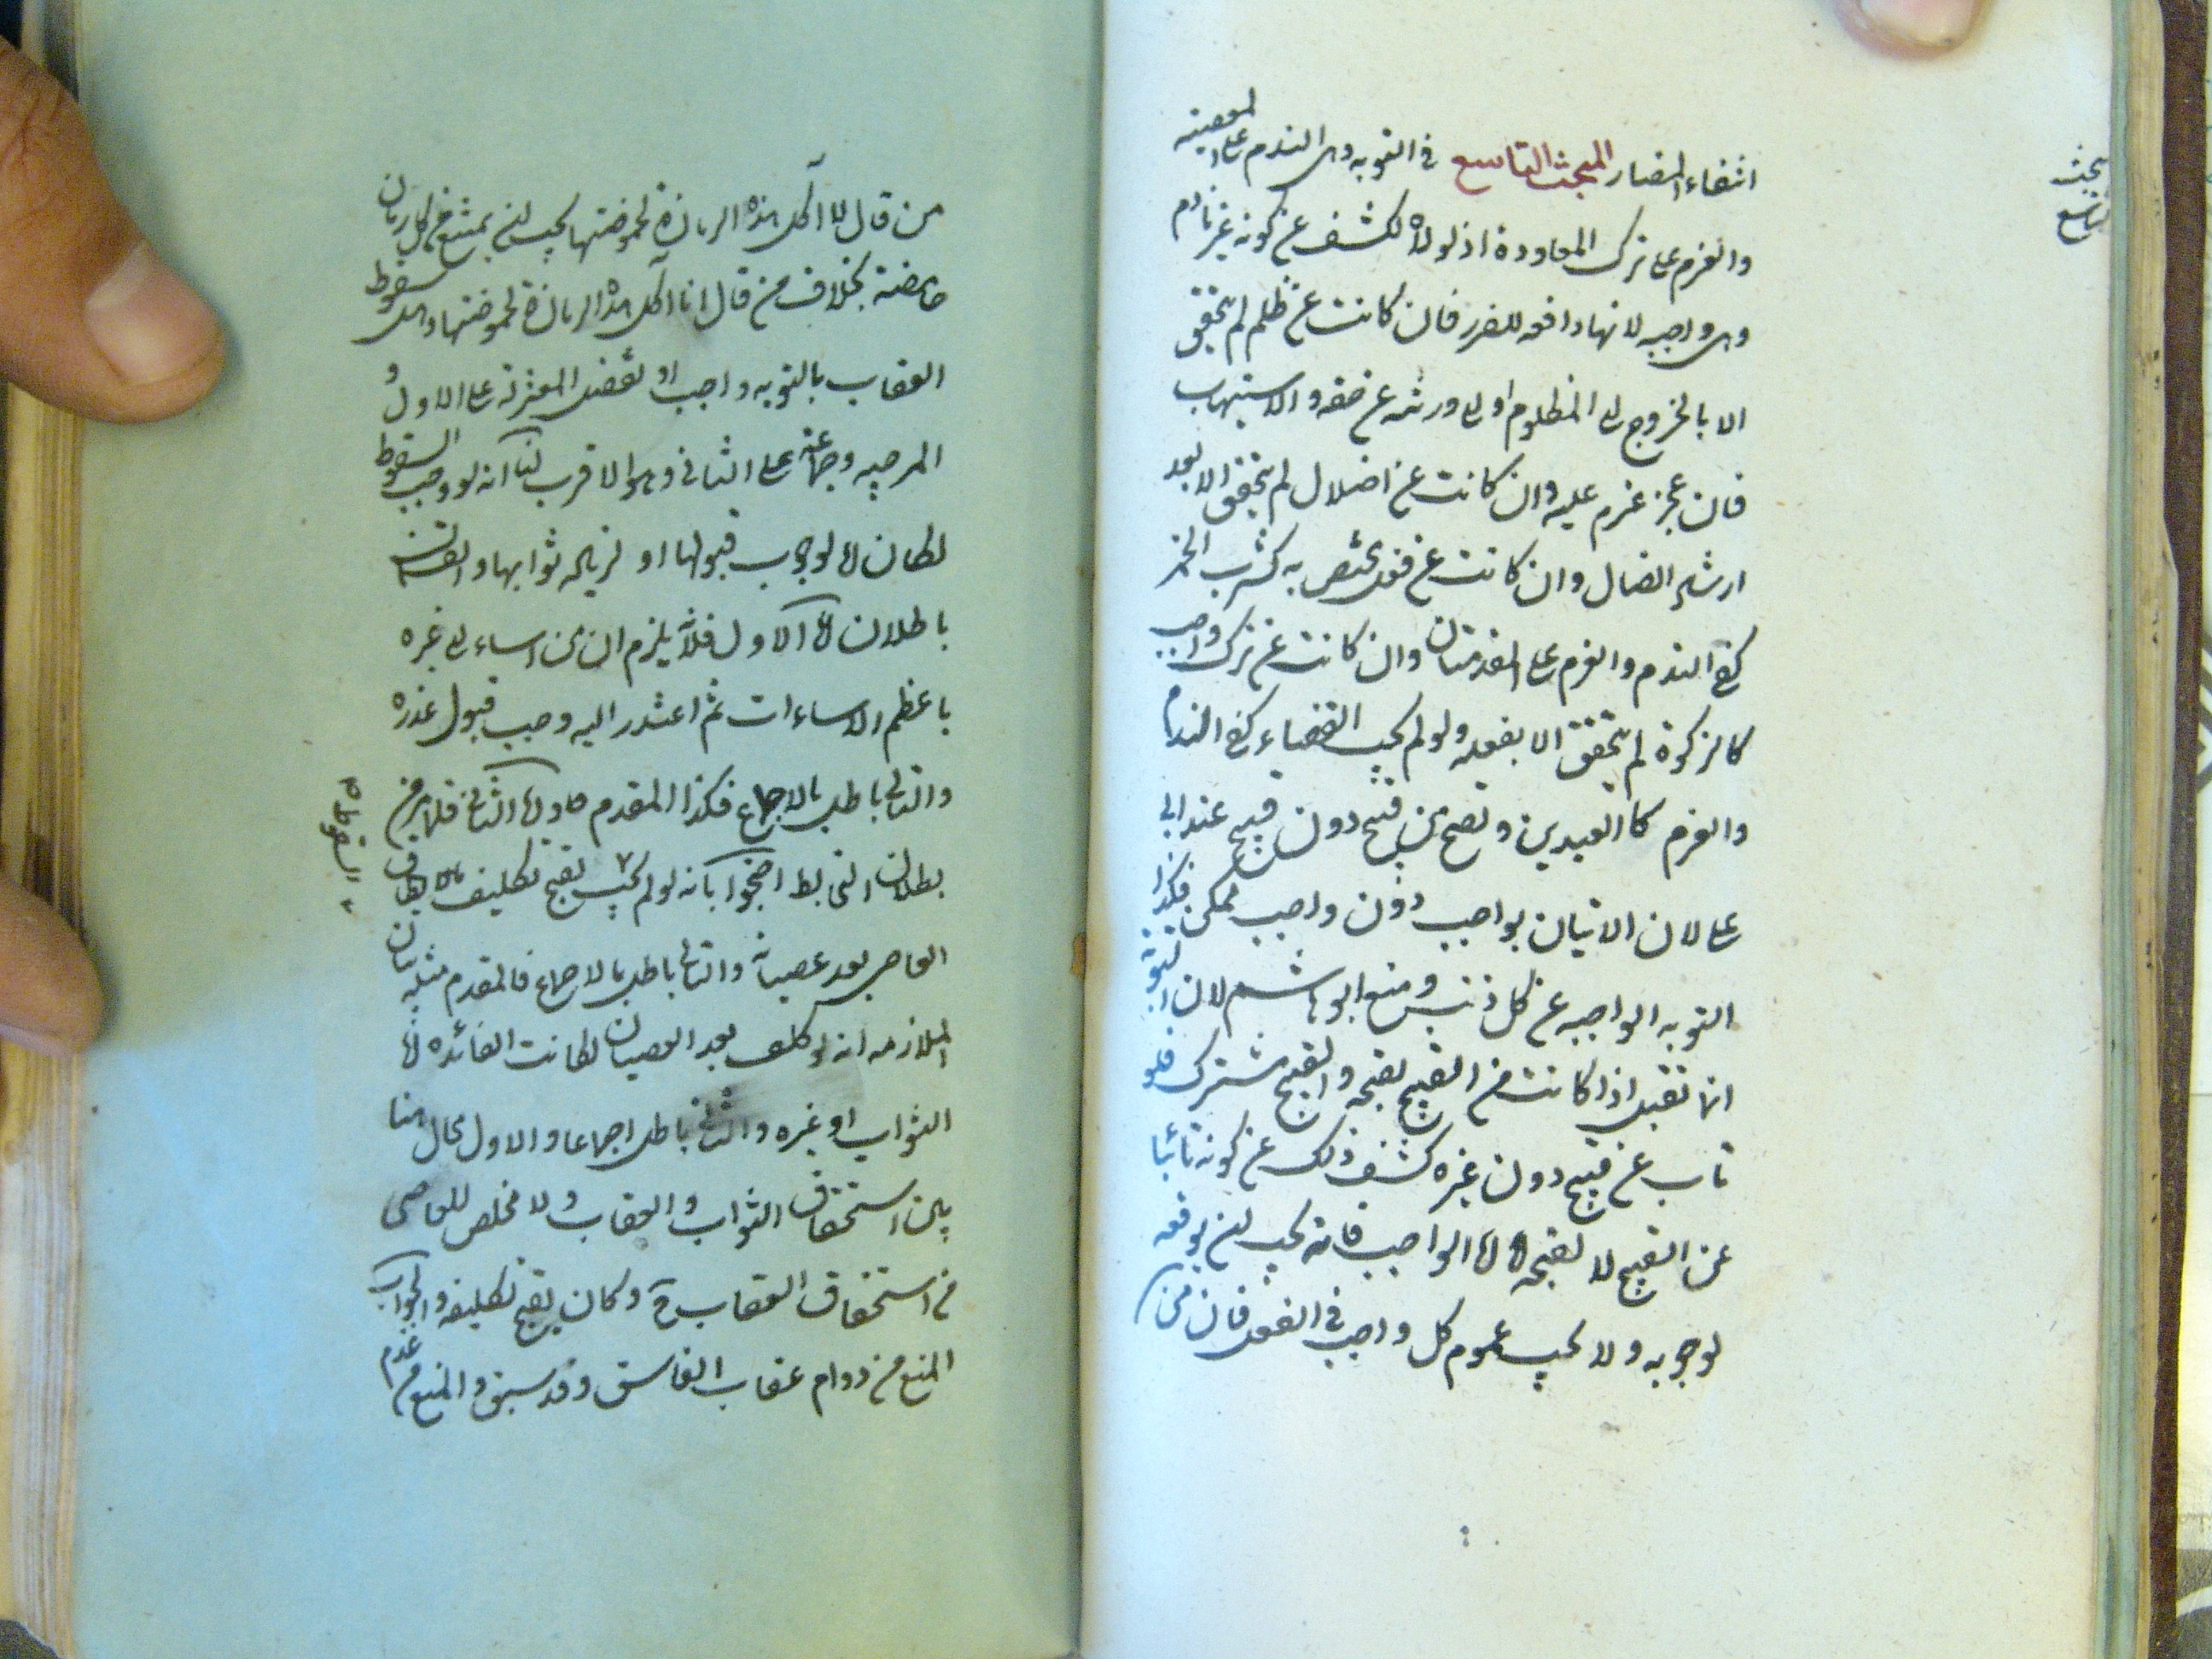 انتفاء المضار المبحث التاسع في التوبه وهى الندم على المعصيته
والعزم على ترك المعاودة اذ لولاه لكشف عن كونه غير نادم
وهى واجبه لانها دافعه للضرر فان كانت عن ظلم لم يتحقق
الا بالخروج الى المظلوم او الى ورثته عن حقه والاستيهاب
فان عجز عزم عليه وان كانت عن اضلال لم يتحقق الا بعد
ارشاد الضال وان كانت عن فعل يختص به كشرب الخمر
كفى الندم والعزم على المقدمتان وان كانت عن ترك واجب
كالزكوة لم يتحقق الا بفعله ولو لم يجب القضاء كفى الندم
والعزم كالعيدين وتصح من قبيح دون قبيح عند ابى
على لان الاتيان بواجب دون واجب ممكن فكذا
التوبه الواجبه عن كل ذنب ومنع ابو هاشم لان التوبة
انما تقبل اذا كانت من القبيح لقبحه والقبح مشترك فلو
تاب عن قبيح دون غيره كشف ذلك عن كونه تائبا
عن القبيح لا لقبحه اما الواجب فانه يجب ان يوقعه
لوجوبه ولا يجب عموم كل واجب في الفعل فان من
بحث
تاسع
من قال لا اكل هذه الرمانة لحموضتها يجب ان يمتنع من كل رمان
حامضة بخلاف من قال انا اكل هذه الرمانة لحموضتها وهل سقوط
العقاب بالتوبه واجب او تفضل المعتزلة على الاول و
المرجيه وجماعة على الثانى وهو الاقرب لنا انه لو وجب السقوط
لكان اما لوجوب قبولها او لزيادة ثوابها والقسمان
باطلان اما الاول فلانه يلزم ان من اساء الى غيره
باعظم الاساءات ثم اعتذر اليه وجب قبول عذره
والتالى باطل بالاجماع فكذا المقدم واما الثانى فلما مر من
بطلان التحابط احتجوا بانه لو لم يجب لقبح تكليف
العاصى بعد عصيانه والتالى باطل بالاجماع فالمقدم مثله بيان
الملازمه انه لو كلف بعد العصيان لكانت الفائدة اما
الثواب او غيره والثانى باطل اجماعا والاول محال هنا
بين استحقاق الثواب والعقاب ولا مخلص للعاصى
من استحقاق العقاب ح وكان يقبح تكليفه والجواب
المنع من دوام عقاب الفاسق وقد سبق والمنع من عدم
السقوط